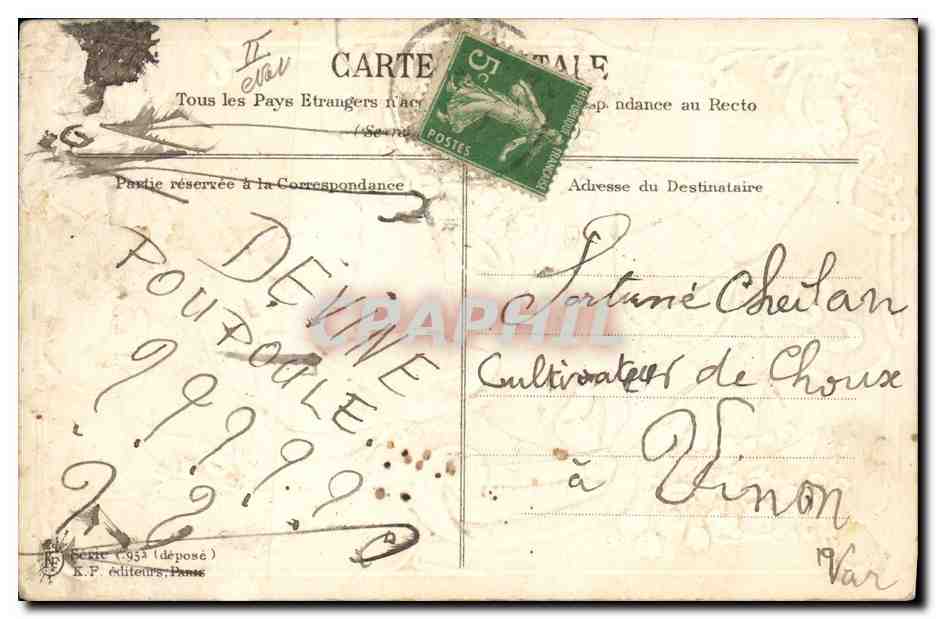 II
CARTE POSTALE
Tous les Pays Etrangers n'acc spondance au Recto
(Se
5c
POSTES
REPUBLIQUE FRANÇAISE
Partie réservée à la Correspondance
Adresse du Destinataire
DEVINE
POUPOULE.
? ? ? ? ?
? ?
Fortuné Cheilan
Cultivateur de Choux
à Vinon
Var
CPAPHIL
Série C.952 (déposé)
K.F. éditeurs, Paris
KF